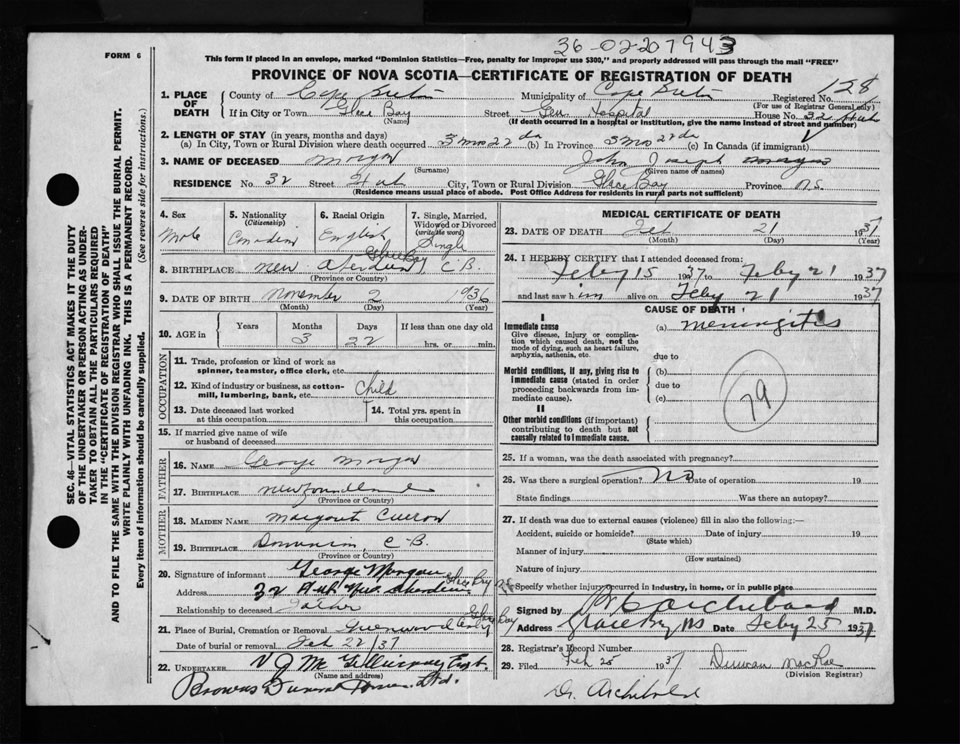 36-02-207943
FORM 6
This form if placed in an envelope, marked "Dominion Statistics—Free, penalty for improper use $300," and properly addressed will pass through the mail "FREE"
PROVINCE OF NOVA SCOTIA—CERTIFICATE OF REGISTRATION OF DEATH
1. PLACE OF DEATH County of Cape Breton Municipality of Cape Breton Registered No. 128
(For use of Registrar General only)
If in City or Town Glace Bay Street Gen Hospital House No. 32
(Name) (If death occurred in a hospital or institution, give the name instead of street and number)
2. LENGTH OF STAY (in years, months and days)
(a) In City, Town or Rural Division where death occurred 3 mo 22 da (b) In Province 3 mo 22 da (c) In Canada (if immigrant)
3. NAME OF DECEASED Morgan John Joseph Morgan
(Surname) (Given name or names)
RESIDENCE No. 32 Street City, Town or Rural Division Glace Bay Province N.S.
(Residence means usual place of abode. Post Office Address for residents in rural parts not sufficient)
SEC. 46—VITAL STATISTICS ACT MAKES IT THE DUTY
OF THE UNDERTAKER OR PERSON ACTING AS UNDER-
TAKER TO OBTAIN ALL THE PARTICULARS REQUIRED
IN THE "CERTIFICATE OF REGISTRATION OF DEATH"
AND TO FILE THE SAME WITH THE DIVISION REGISTRAR WHO SHALL ISSUE THE BURIAL PERMIT.
WRITE PLAINLY WITH UNFADING INK. THIS IS A PERMANENT RECORD.
Every item of information should be carefully supplied. (See reverse side for instructions.)
4. Sex 5. Nationality 6. Racial Origin 7. Single, Married,
(Citizenship) Widowed or Divorced
(write the word)
Male Canadian English Single
Glace Bay
8. BIRTHPLACE New Aberdeen C B.
(Province or Country)
9. DATE OF BIRTH November 2 1936
(Month) (Day) (Year)
10. AGE in Years Months Days If less than one day old
3 22 hrs. or min.
OCCUPATION
11. Trade, profession or kind of work as
spinner, teamster, office clerk, etc.
12. Kind of industry or business, as cotton-
mill, lumbering, bank, etc. Child
13. Date deceased last worked
at this occupation
14. Total yrs. spent in
this occupation
15. If married give name of wife
or husband of deceased
FATHER
16. NAME George Morgan
17. BIRTHPLACE Newfoundland
(Province or Country)
MOTHER
18. MAIDEN NAME Margaret
19. BIRTHPLACE Dominion, C-B.
(Province or Country)
20. Signature of informant George Morgan
Address 32 New Aberdeen Glace Bay N.S.
Relationship to deceased Father
21. Place of Burial, Cremation or Removal Greenwood Glace Bay
Date of burial or removal Feb 22/37
22. UNDERTAKER V J McGillivray
(Name and address)
Browns Funeral Home Ltd.
MEDICAL CERTIFICATE OF DEATH
23. DATE OF DEATH Feb 21 1937
(Month) (Day) (Year)
24. I HEREBY CERTIFY that I attended deceased from:
Feby 15 1937 to Feby 21 1937
and last saw him alive on Feby 21 1937
CAUSE OF DEATH
I
Immediate cause (a) Meningitis
Give disease, injury or complica-
tion which caused death, not the
mode of dying, such as heart failure,
asphyxia, asthenia, etc. due to
Morbid conditions, if any, giving rise to (b)
immediate cause (stated in order due to
proceeding backwards from im-
mediate cause). (c)
79
II
Other morbid conditions (if important)
contributing to death but not
causally related to immediate cause.
25. If a woman, was the death associated with pregnancy?
26. Was there a surgical operation? No Date of operation 19
State findings Was there an autopsy?
27. If death was due to external causes (violence) fill in also the following:—
Accident, suicide or homicide? Date of injury 19
(State which)
Manner of injury
(How sustained)
Nature of injury
Specify whether injury occurred in Industry, in home, or in public place
Signed by Archibald M.D.
Address Glace Bay NS Date Feby 25 1937
28. Registrar's Record Number
29. Filed Feb 25 1937 Duncan MacRae
(Division Registrar)
Dr. Archibald